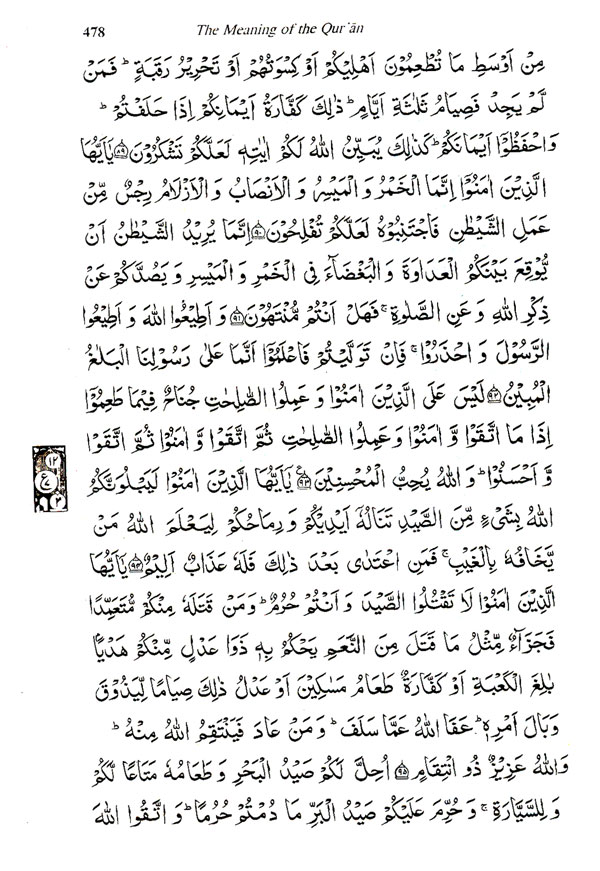 478
The Meaning of the Qur'ān
مِنْ اَوْسَطِ مَا تُطْعِمُوْنَ اَهْلِيْكُمْ اَوْ كِسْوَتُهُمْ اَوْ تَحْرِيْرُ رَقَبَةٍ ؕ فَمَنْ
لَّمْ يَجِدْ فَصِيَامُ ثَلٰثَةِ اَيَّامٍ ؕ ذٰلِكَ كَفَّارَةُ اَيْمَانِكُمْ اِذَا حَلَفْتُمْ ؕ
وَاحْفَظُوْۤا اَيْمَانَكُمْ ؕ كَذٰلِكَ يُبَيِّنُ اللّٰهُ لَكُمْ اٰيٰتِهٖ لَعَلَّكُمْ تَشْكُرُوْنَ ۝۸۹ يٰۤاَيُّهَا
الَّذِيْنَ اٰمَنُوْۤا اِنَّمَا الْخَمْرُ وَ الْمَيْسِرُ وَ الْاَنْصَابُ وَ الْاَزْلَامُ رِجْسٌ مِّنْ
عَمَلِ الشَّيْطٰنِ فَاجْتَنِبُوْهُ لَعَلَّكُمْ تُفْلِحُوْنَ ۝۹۰ اِنَّمَا يُرِيْدُ الشَّيْطٰنُ اَنْ
يُّوْقِعَ بَيْنَكُمُ الْعَدَاوَةَ وَ الْبَغْضَآءَ فِى الْخَمْرِ وَ الْمَيْسِرِ وَ يَصُدَّكُمْ عَنْ
ذِكْرِ اللّٰهِ وَ عَنِ الصَّلٰوةِ ۚ فَهَلْ اَنْتُمْ مُّنْتَهُوْنَ ۝۹۱ وَ اَطِيْعُوا اللّٰهَ وَ اَطِيْعُوا
الرَّسُوْلَ وَ احْذَرُوْا ۚ فَاِنْ تَوَلَّيْتُمْ فَاعْلَمُوْۤا اَنَّمَا عَلٰى رَسُوْلِنَا الْبَلٰغُ
الْمُبِيْنُ ۝۹۲ لَيْسَ عَلَى الَّذِيْنَ اٰمَنُوْا وَ عَمِلُوا الصّٰلِحٰتِ جُنَاحٌ فِيْمَا طَعِمُوْۤا
اِذَا مَا اتَّقَوْا وَّ اٰمَنُوْا وَ عَمِلُوا الصّٰلِحٰتِ ثُمَّ اتَّقَوْا وَّ اٰمَنُوْا ثُمَّ اتَّقَوْا
وَّ اَحْسَنُوْا ؕ وَ اللّٰهُ يُحِبُّ الْمُحْسِنِيْنَ ۝۹۳ يٰۤاَيُّهَا الَّذِيْنَ اٰمَنُوْا لَيَبْلُوَنَّكُمُ
اللّٰهُ بِشَىْءٍ مِّنَ الصَّيْدِ تَنَالُهٗۤ اَيْدِيْكُمْ وَ رِمَاحُكُمْ لِيَعْلَمَ اللّٰهُ مَنْ
يَّخَافُهٗ بِالْغَيْبِ ۚ فَمَنِ اعْتَدٰى بَعْدَ ذٰلِكَ فَلَهٗ عَذَابٌ اَلِيْمٌ ۝۹۴ يٰۤاَيُّهَا
الَّذِيْنَ اٰمَنُوْا لَا تَقْتُلُوا الصَّيْدَ وَ اَنْتُمْ حُرُمٌ ؕ وَ مَنْ قَتَلَهٗ مِنْكُمْ مُّتَعَمِّدًا
فَجَزَآءٌ مِّثْلُ مَا قَتَلَ مِنَ النَّعَمِ يَحْكُمُ بِهٖ ذَوَا عَدْلٍ مِّنْكُمْ هَدْيًۢا
بٰلِغَ الْكَعْبَةِ اَوْ كَفَّارَةٌ طَعَامُ مَسٰكِيْنَ اَوْ عَدْلُ ذٰلِكَ صِيَامًا لِّيَذُوْقَ
وَبَالَ اَمْرِهٖ ؕ عَفَا اللّٰهُ عَمَّا سَلَفَ ؕ وَ مَنْ عَادَ فَيَنْتَقِمُ اللّٰهُ مِنْهُ ؕ
وَ اللّٰهُ عَزِيْزٌ ذُو انْتِقَامٍ ۝۹۵ اُحِلَّ لَكُمْ صَيْدُ الْبَحْرِ وَ طَعَامُهٗ مَتَاعًا لَّكُمْ
وَ لِلسَّيَّارَةِ ۚ وَ حُرِّمَ عَلَيْكُمْ صَيْدُ الْبَرِّ مَا دُمْتُمْ حُرُمًا ؕ وَ اتَّقُوا اللّٰهَ